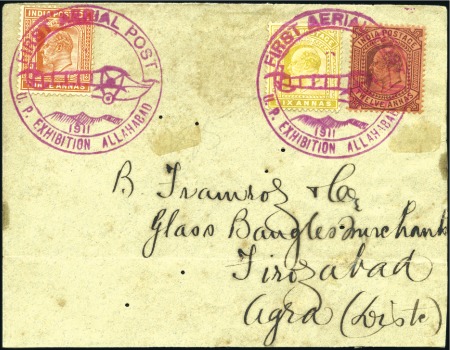 INDIA POSTAGE
FIRST AERIAL POST
1911
U. P. EXHIBITION ALLAHABAD
FIRST AERIAL
INDIA POSTAGE
SIX ANNAS
TWELVE ANNAS
1911
U. P. EXHIBITION ALLAHABAD
B Framroz & Co,
Glass Bangles Merchant
Firozabad
Agra (Distr)